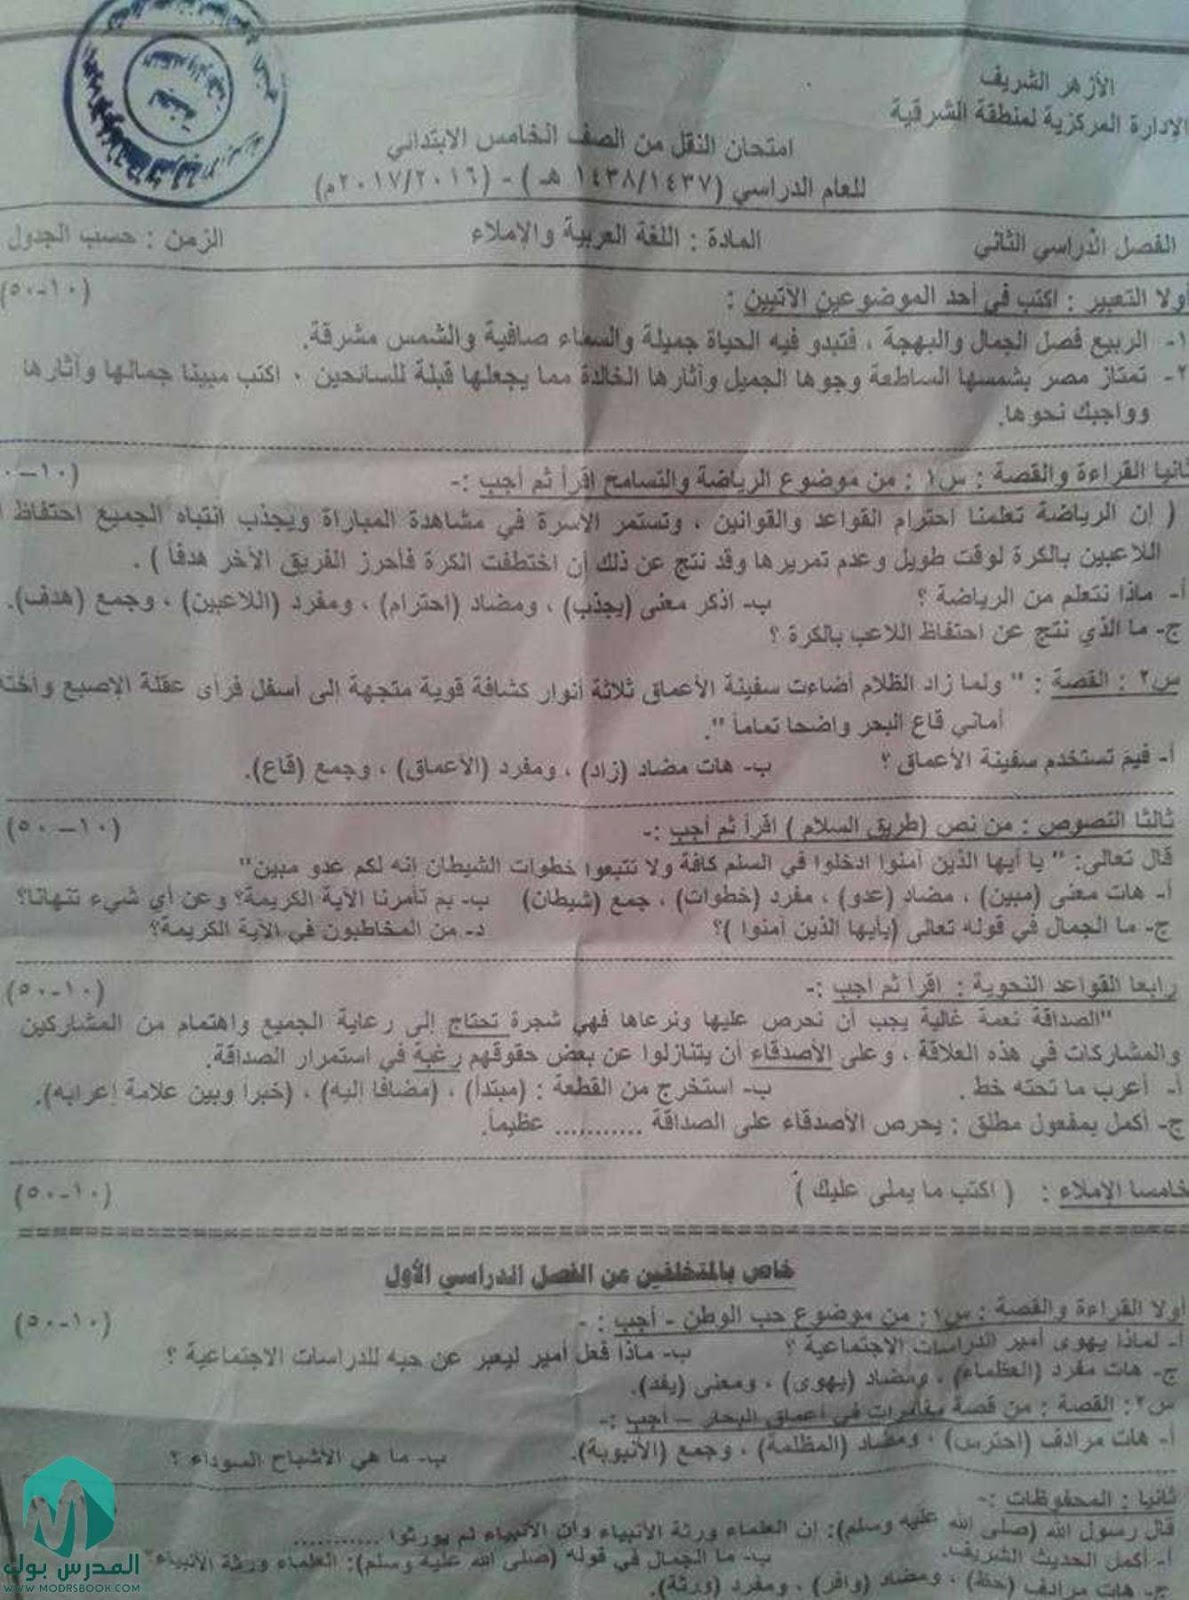 الأزهر الشريف
الإدارة المركزية لمنطقة الشرقية
امتحان النقل من الصف الخامس الابتدائي
للعام الدراسي (١٤٣٨/١٤٣٧ هـ) - (٢٠١٧/٢٠١٦م)
الفصل الدراسي الثاني المادة : اللغة العربية والإملاء الزمن : حسب الجدول
أولا التعبير : اكتب في أحد الموضوعين الآتيين : (١٠-٥٠)
١- الربيع فصل الجمال والبهجة ، فتبدو فيه الحياة جميلة والسماء صافية والشمس مشرقة.
٢- تمتاز مصر بشمسها الساطعة وجوها الجميل وآثارها الخالدة مما يجعلها قبلة للسائحين ٠ اكتب مبينا جمالها وآثارها
وواجبك نحوها.
ثانيا القراءة والقصة : س١ : من موضوع الرياضة والتسامح اقرأ ثم أجب :-
( إن الرياضة تعلمنا احترام القواعد والقوانين ، وتستمر الأسرة في مشاهدة المباراة ويجذب انتباه الجميع احتفاظ
اللاعبين بالكرة لوقت طويل وعدم تمريرها وقد نتج عن ذلك أن اختطفت الكرة فأحرز الفريق الآخر هدفاً ) .
أ- ماذا نتعلم من الرياضة ؟ ب- اذكر معنى (يجذب) ، ومضاد (احترام) ، ومفرد (اللاعبين) ، وجمع (هدف).
ج- ما الذي نتج عن احتفاظ اللاعب بالكرة ؟
س٢ : القصة : " ولما زاد الظلام أضاءت سفينة الأعماق ثلاثة أنوار كشافة قوية متجهة إلى أسفل فرأى عقلة الإصبع وأخته
أماني قاع البحر واضحا تماماً ".
أ- فيم تستخدم سفينة الأعماق ؟ ب- هات مضاد (زاد) ، ومفرد (الأعماق) ، وجمع (قاع).
ثالثا النصوص : من نص (طريق السلام ) اقرأ ثم أجب :- (١٠-٥٠)
قال تعالى: " يا أيها الذين آمنوا ادخلوا في السلم كافة ولا تتبعوا خطوات الشيطان إنه لكم عدو مبين"
أ- هات معنى (مبين) ، مضاد (عدو) ، مفرد (خطوات) ، جمع (شيطان) ب- بم تأمرنا الآية الكريمة؟ وعن أي شيء تنهانا؟
ج- ما الجمال في قوله تعالى (يأيها الذين آمنوا )؟ د- من المخاطبون في الآية الكريمة؟
رابعا القواعد النحوية : اقرأ ثم أجب :- (١٠-٥٠)
"الصداقة نعمة غالية يجب أن نحرص عليها ونرعاها فهي شجرة تحتاج إلى رعاية الجميع واهتمام من المشاركين
والمشاركات في هذه العلاقة ، وعلى الأصدقاء أن يتنازلوا عن بعض حقوقهم رغبة في استمرار الصداقة.
أ- أعرب ما تحته خط . ب- استخرج من القطعة : (مبتدأ) ، (مضافا إليه) ، (خبراً وبين علامة إعرابه).
ج- أكمل بمفعول مطلق : يحرص الأصدقاء على الصداقة ........... عظيماً.
خامسا الإملاء : ( اكتب ما يملى عليك ) (١٠-٥٠)
خاص بالمتخلفين عن الفصل الدراسي الأول
أولا القراءة والقصة : س١: من موضوع حب الوطن - أجب : - (١٠-٥٠)
أ- لماذا يهوى أمير الدراسات الاجتماعية ؟ ب- ماذا فعل أمير ليعبر عن حبه للدراسات الاجتماعية ؟
ج- هات مفرد (العظماء) ، ومضاد (يهوى) ، ومعنى (يفد).
س٢: القصة : من قصة مغامرات في أعماق البحار – أجب :-
أ- هات مرادف (احترس) ، ومضاد (المظلمة) ، وجمع (الأنبوبة). ب- ما هي الأشباح السوداء ؟
ثانيا : المحفوظات :-
قال رسول الله (صلى الله عليه وسلم): إن العلماء ورثة الأنبياء وإن الأنبياء لم يورثوا ...........
أ- أكمل الحديث الشريف. ب- ما الجمال في قوله (صلى الله عليه وسلم): العلماء ورثة الأنبياء؟
ج- هات مرادف (حظ) ، ومضاد (وافر) ، ومفرد (ورثة).
المدرس بوك
WWW.MODRSBOOK.COM